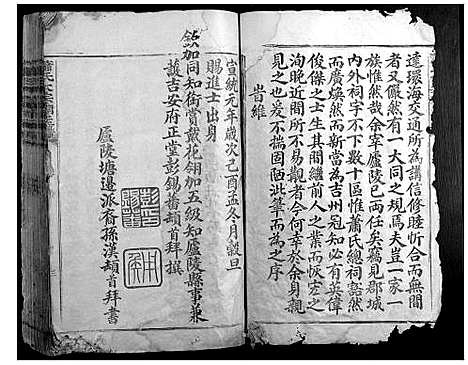 遠環海交通所為講信修睦忻合而無間
者又儼然有一大同之規焉夫豈一家一
族惟然哉余宰廬陵已兩任矣竊見郡城
內外祠宇不下數十區惟蕭氏總祠谿然
而廣煥然而新嘗為吉州冠知必有英偉
俊傑之士生其間繼前人之業而恢宏之
洵晚近間所不易觀者今何幸於余身親
見之也爰不揣固陋此筆而為之序
皆維
宣統元年歲次己酉孟冬月穀旦
賜進士出身
欽加同知銜賞戴花翎加五級知廬陵縣事兼
護吉安府正堂彭錫蕃頓首拜撰
廬陵塘邊派裔孫漢頡首拜書